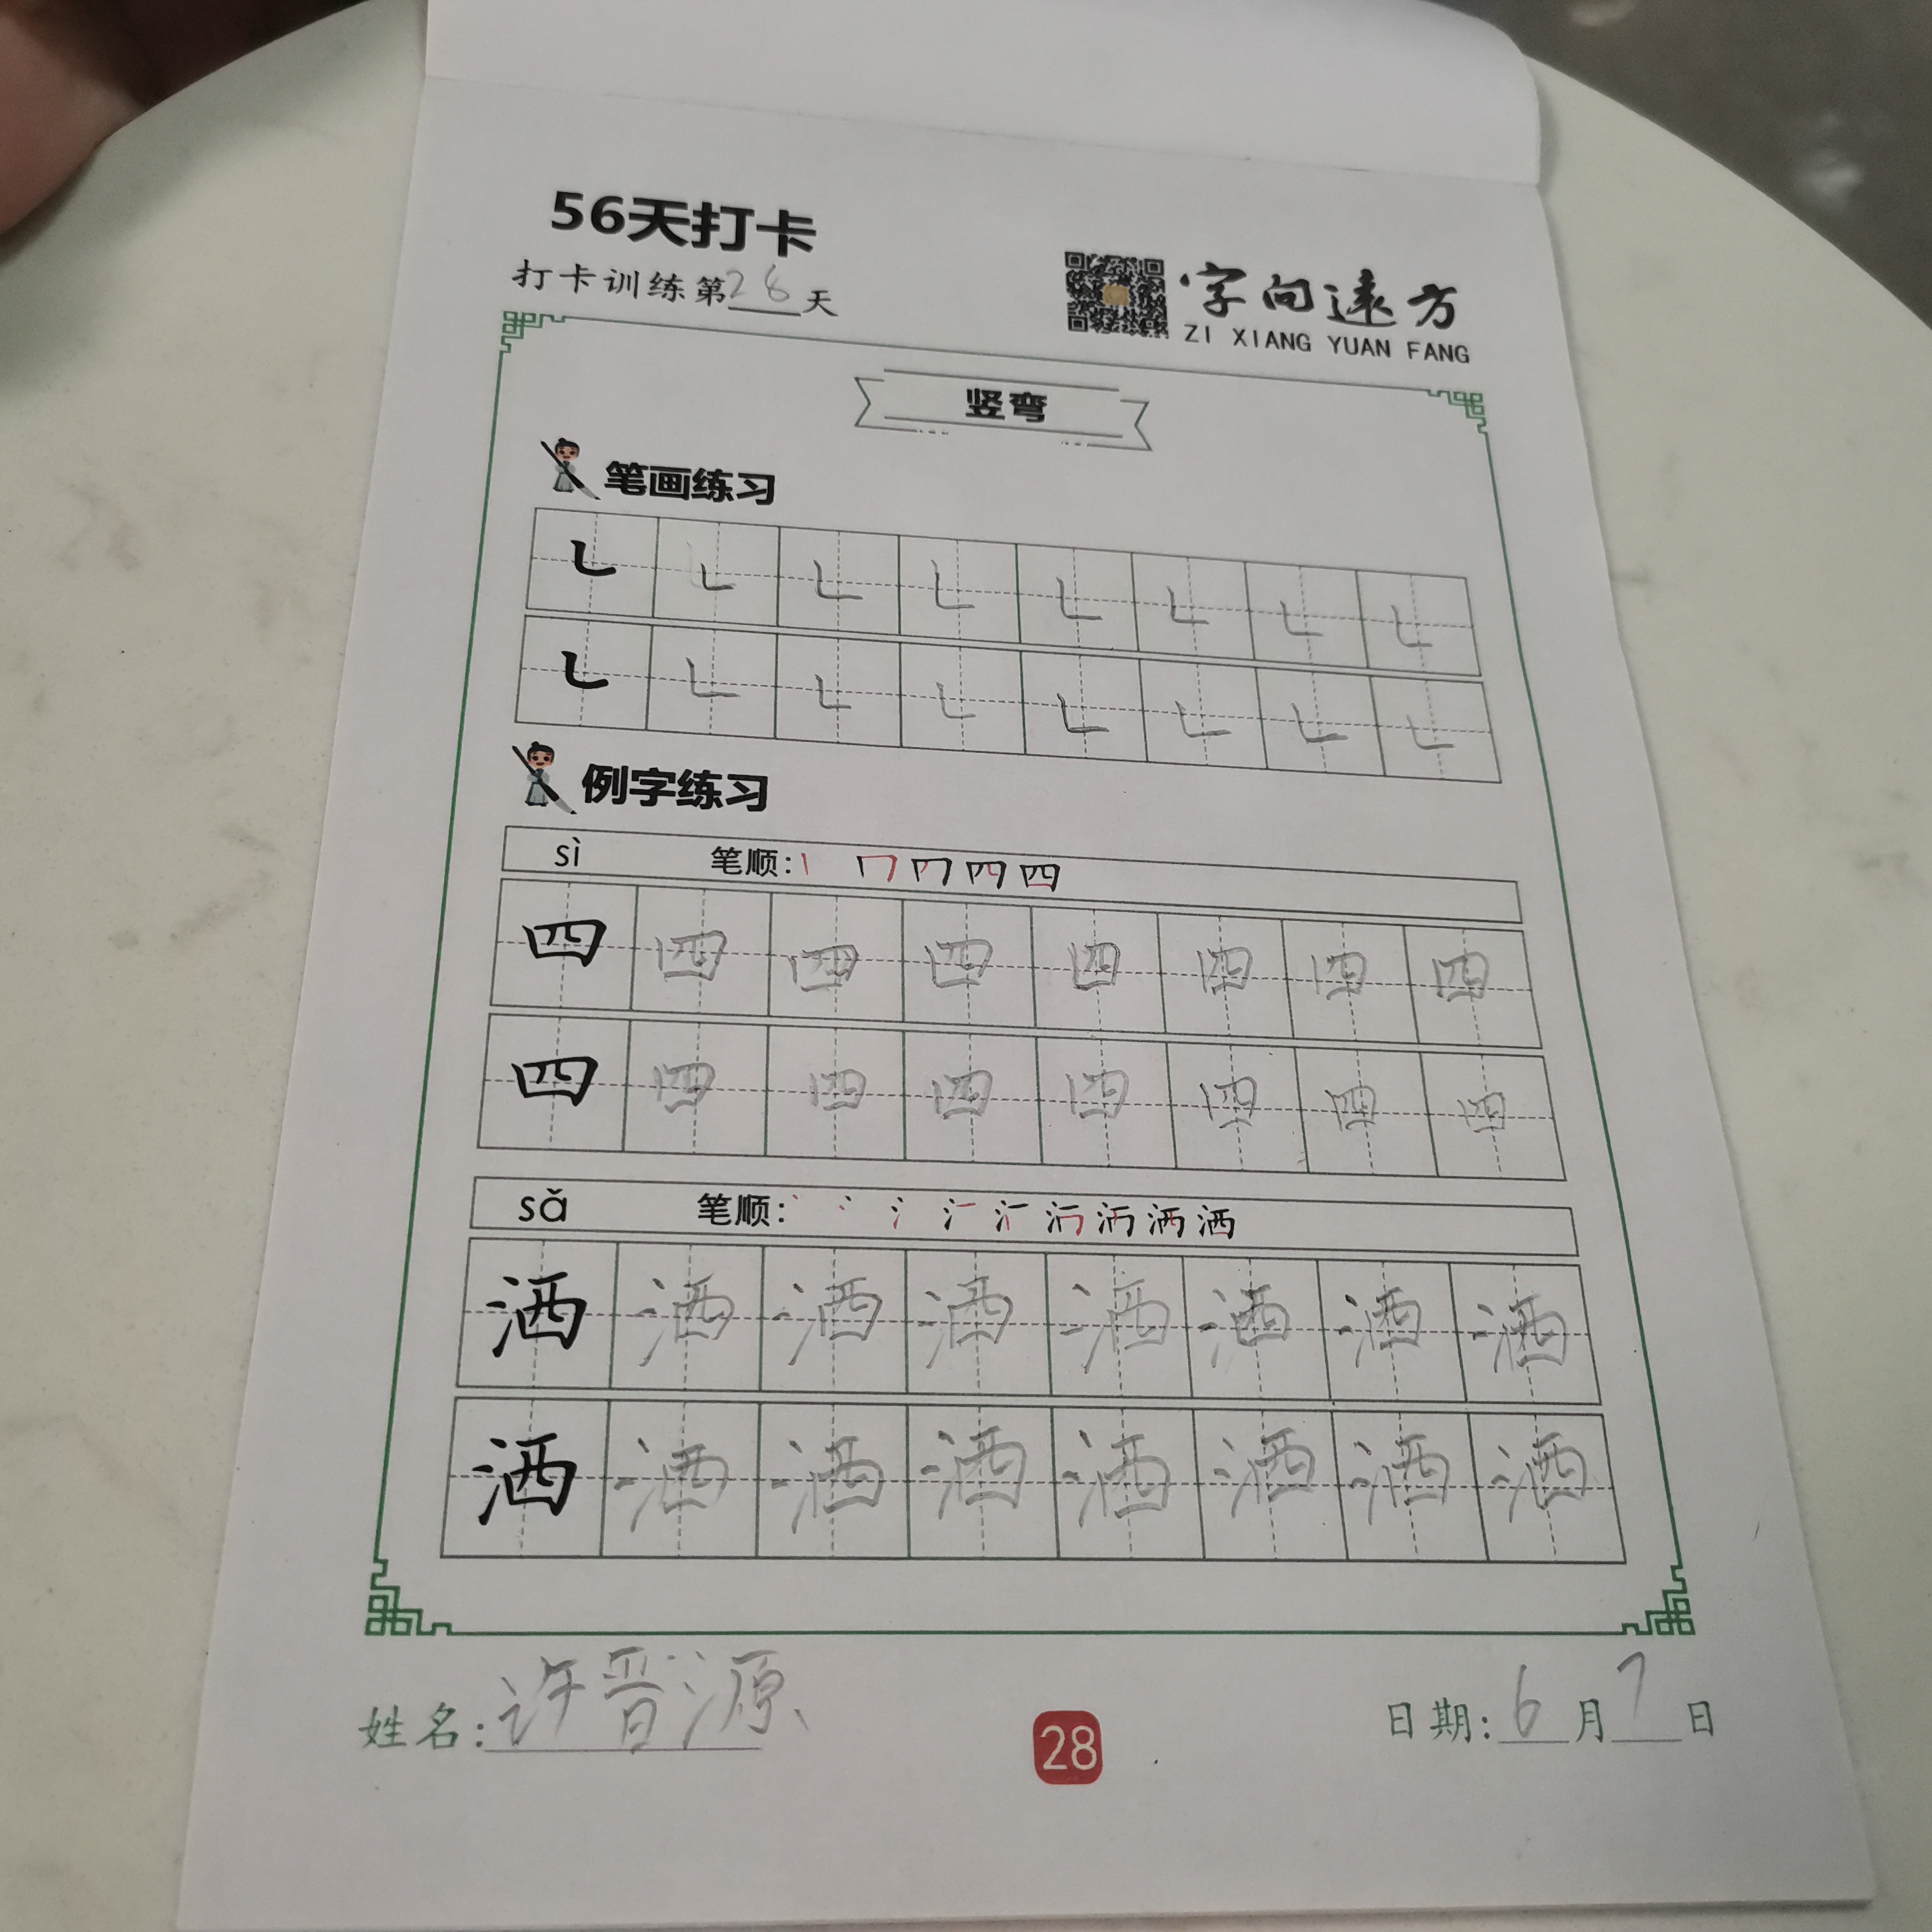 56天打卡
打卡训练第28天
字向远方
ZI XIANG YUAN FANG
竖弯
笔画练习
㇄ ㇄ ㇄ ㇄ ㇄ ㇄ ㇄ ㇄
㇄ ㇄ ㇄ ㇄ ㇄ ㇄ ㇄ ㇄
例字练习
sì 笔顺: 四
四 四 四 四 四 四 四 四
四 四 四 四 四 四 四 四
sǎ 笔顺: 洒
洒 洒 洒 洒 洒 洒 洒 洒
洒 洒 洒 洒 洒 洒 洒 洒
姓名:许晋源
28
日期:6月7日